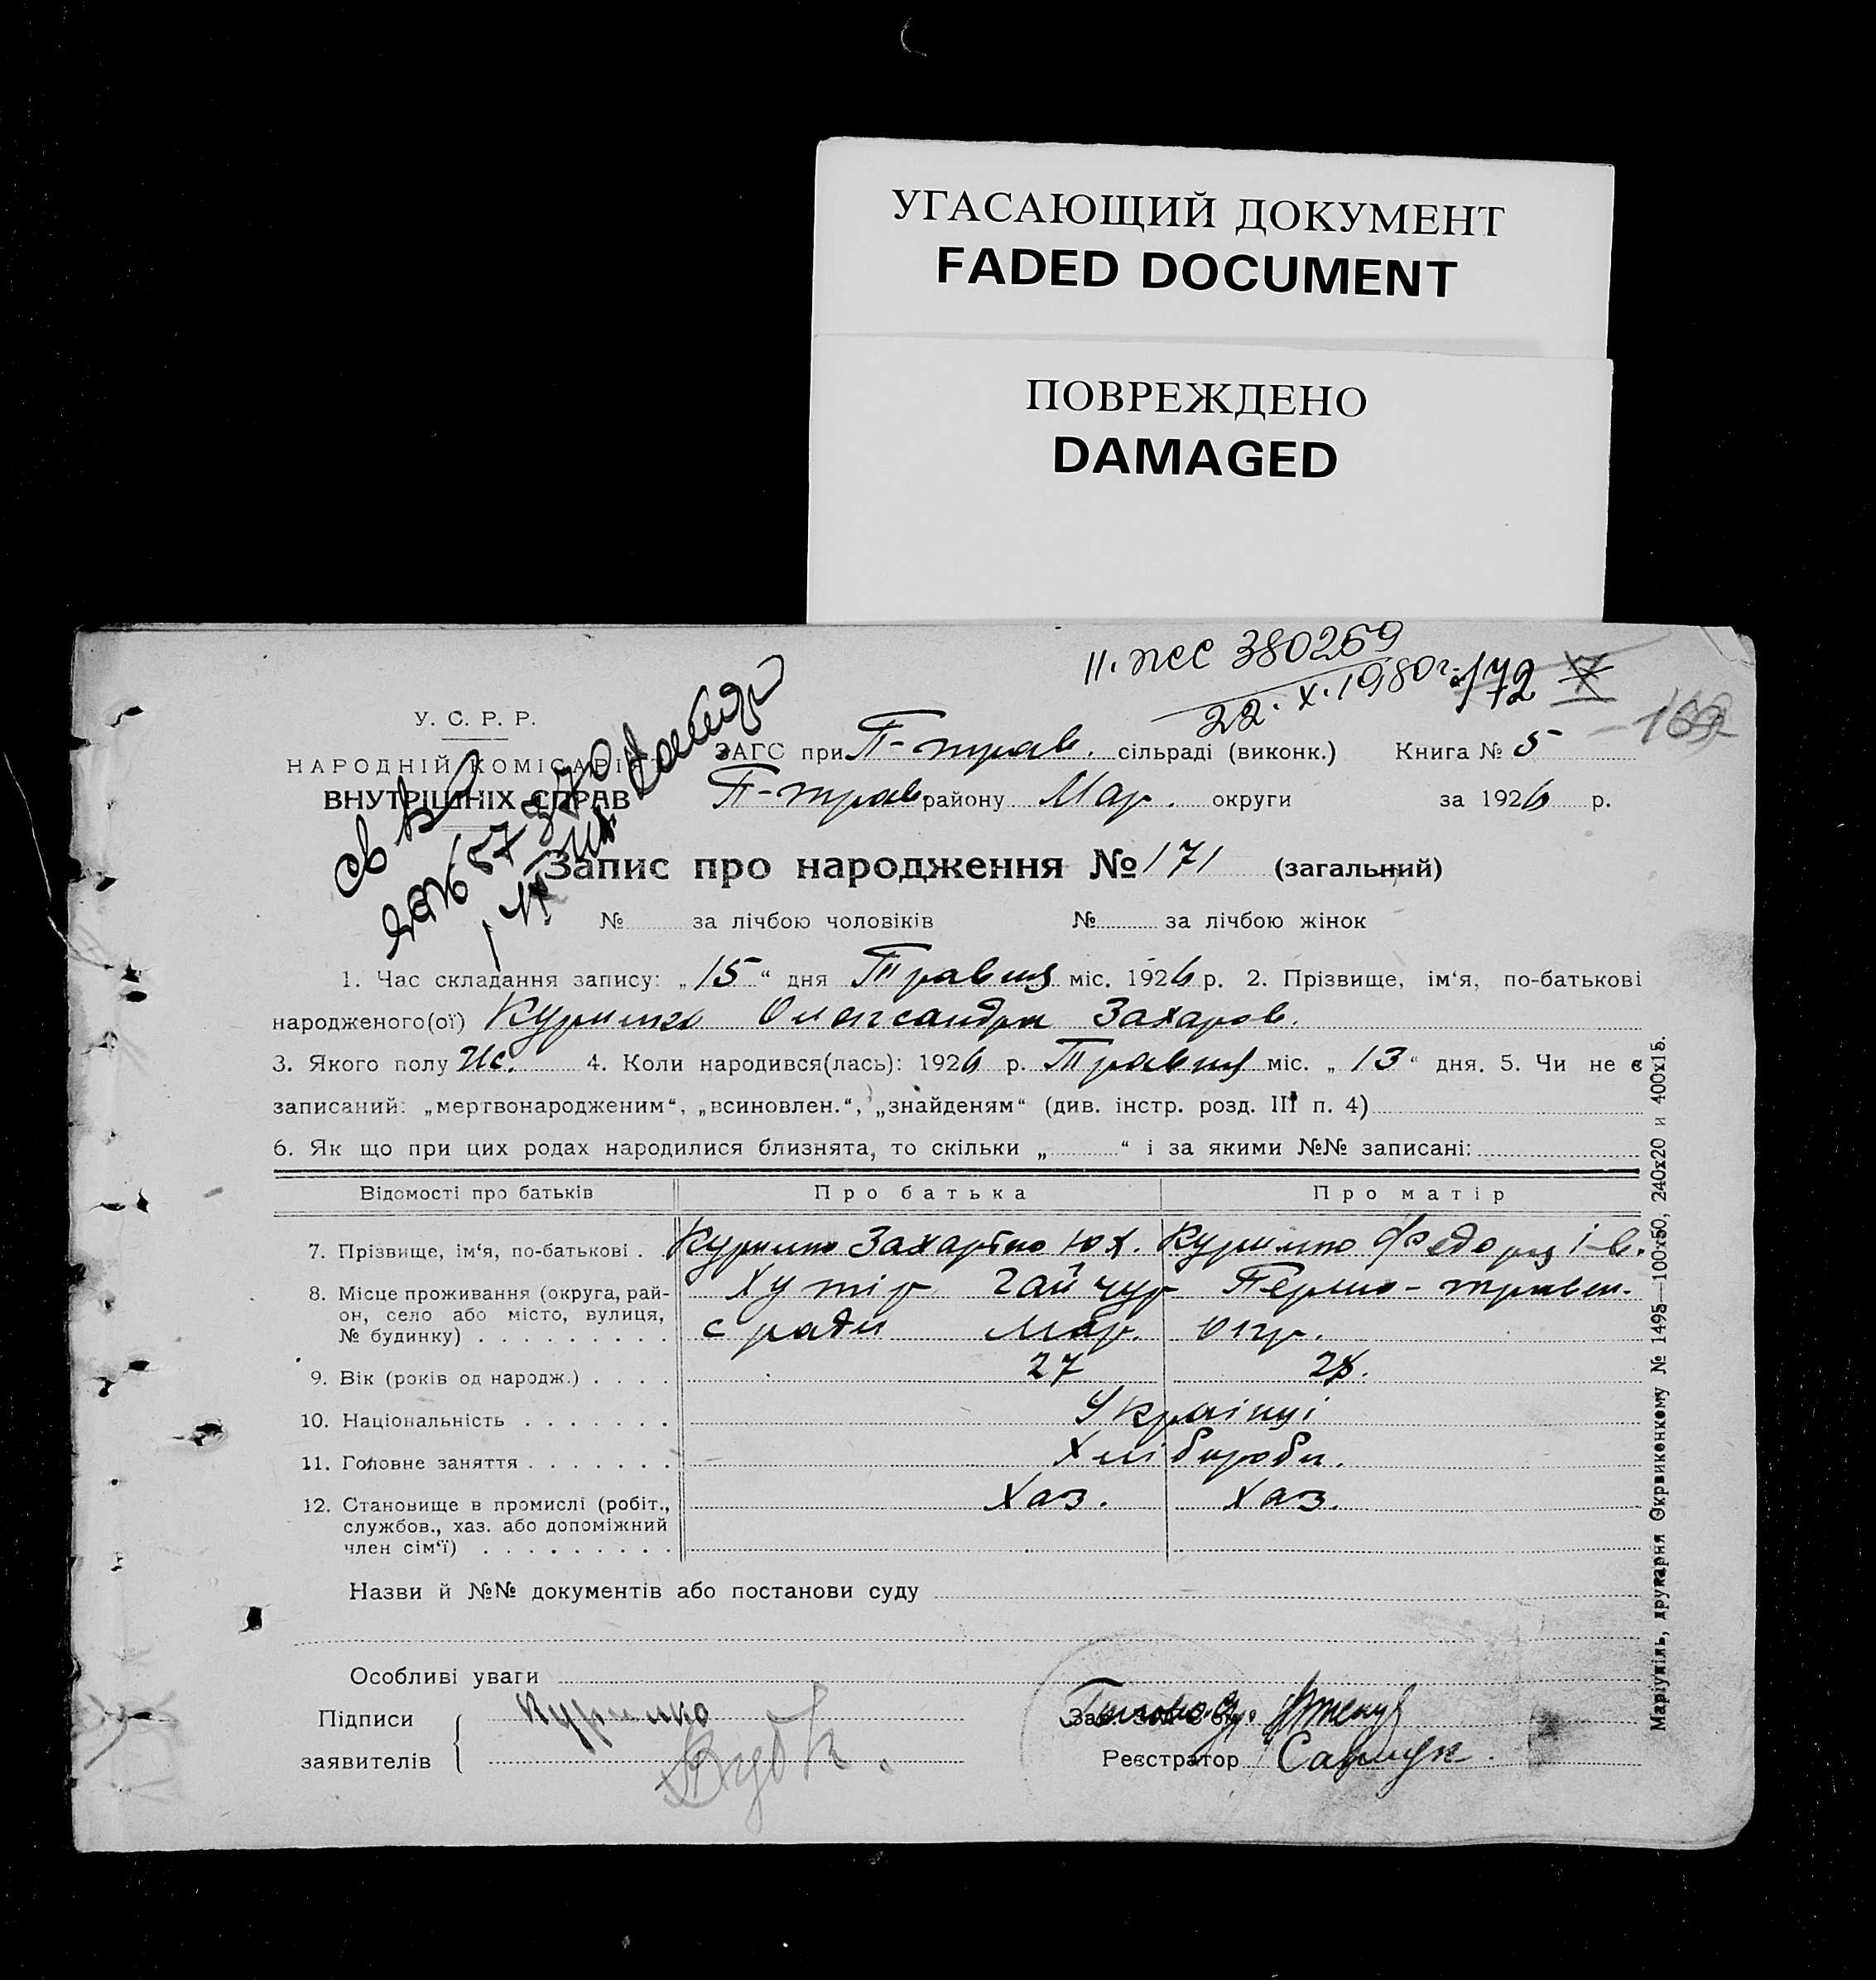 УГАСАЮЩИЙ ДОКУМЕНТ
FADED DOCUMENT
ПОВРЕЖДЕНО
DAMAGED
380269
22. X. 1980г. 172
169
У. С. Р. Р.
НАРОДНІЙ КОМІСАРІЯТ
ВНУТРІШНІХ СПРАВ
ЗАГС при П-трав. сільраді (виконк.) Книга № 5
П-трав району Мар. округи за 1926 р.
Запис про народження № 171 (загальний)
№ за лічбою чоловіків № за лічбою жінок
1. Час складання запису: „15“ дня Травня міс. 1926 р. 2. Прізвище, ім‘я, по-батькові
народженого(ої) Курилко Олександра Захаров.
3. Якого полу жс. 4. Коли народився(лась): 1926 р. Травня міс. „13“ дня. 5. Чи не є
записаний: „мертвонародженим“, „всиновлен.“, „знайденям“ (див. інстр. розд. III п. 4)
6. Як що при цих родах народилися близнята, то скільки „ “ і за якими №№ записані:
Відомості про батьків Про батька Про матір
7. Прізвище, ім‘я, по-батькові . Курилко Юх. Курилко
8. Місце проживання (округа, рай- Хутір Гайчур Першо-травен.
он, село або місто, вулиця, с ради Мар. Окр.
№ будинку)
9. Вік (років од народж.) 27
10. Національність Українці
11. Головне заняття Хлібороби.
12. Становище в промислі (робіт., Хаз. Хаз.
службов., хаз. або допоміжний
член сім‘ї)
Назви й №№ документів або постанови суду
Особливі уваги
Підписи Курилко
заявителів
Реєстратор
Маріупіль, друкарня Окрвиконкому № 1495—100х50, 240х20 и 400х15.